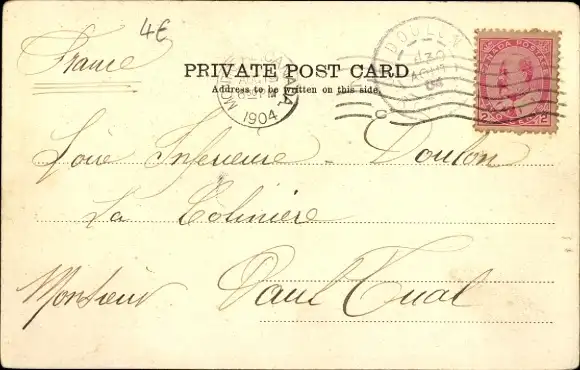 4€
France
PRIVATE POST CARD
Address to be written on this side.
CANADA
1904
DOULON
04
CANADA POSTAGE
2 CENTS 2
Loire Inferieure - Doulon
La Colinière
Monsieur Paul Tual